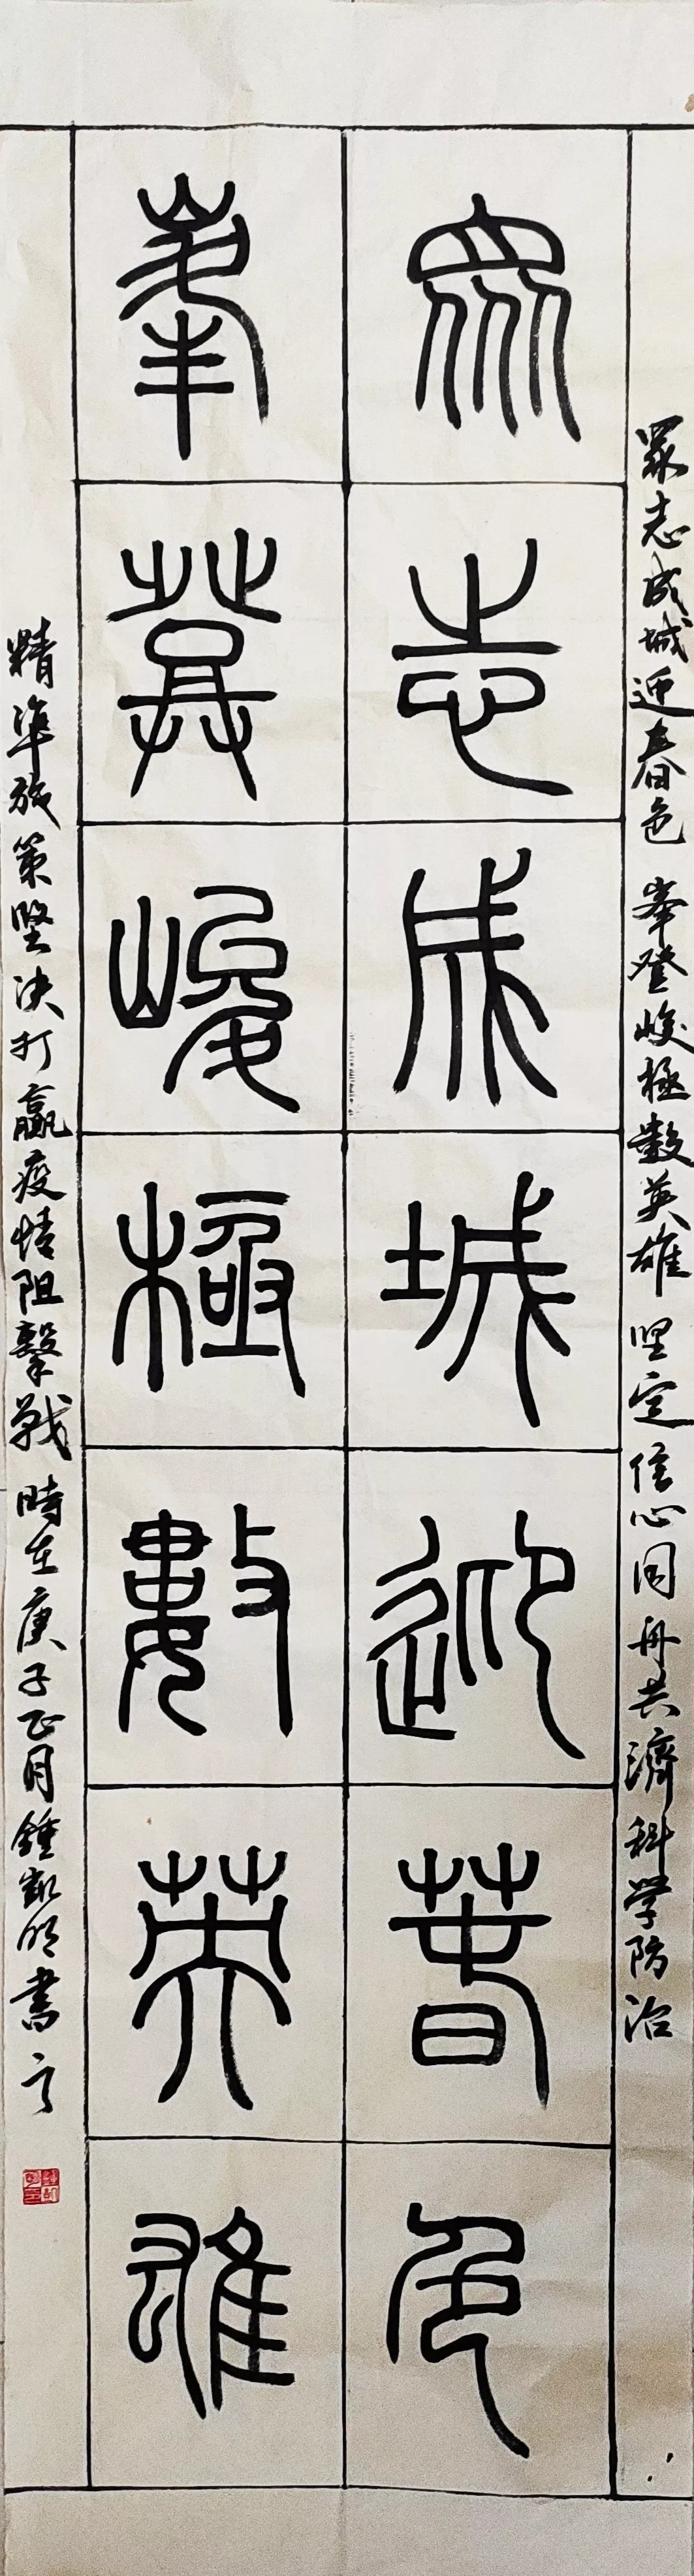 眾志成城迎春色 峯登峻極數英雄 坚定信心同舟共濟科学防治
眾志成城迎春色
峯登峻極數英雄
精準施策坚决打贏疫情阻擊战 時在庚子正月鍾凯明書之